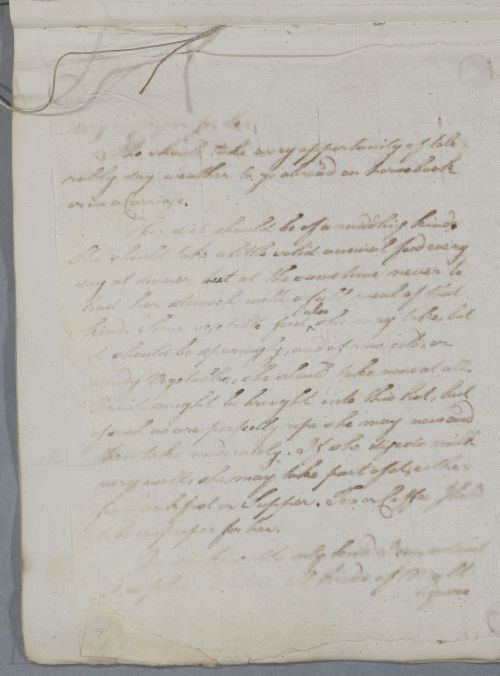 very for her.
She should take every opportunity of tole-
rably dry weather to go abroad on horseback
or in a Carriage.
Her diet should be of a middling kind.
She should take a little solid animal food every
day at dinner but at the same time never to
load her stomach with a full meal of that
kind. Some vegetable food also she may take, but
it should be sparingly, and of raw, cold, or
windy Vegetables, she should take none at all.
Fruit might be brought into this list, but
of such as are perfectly ripe she may now and
then take moderately. If she digests milk
very well, she may take part of it, either
for breakfast or Supper. Tea or Coffee
to be improper for her.
In the only kind
all kinds of Malt
liquors